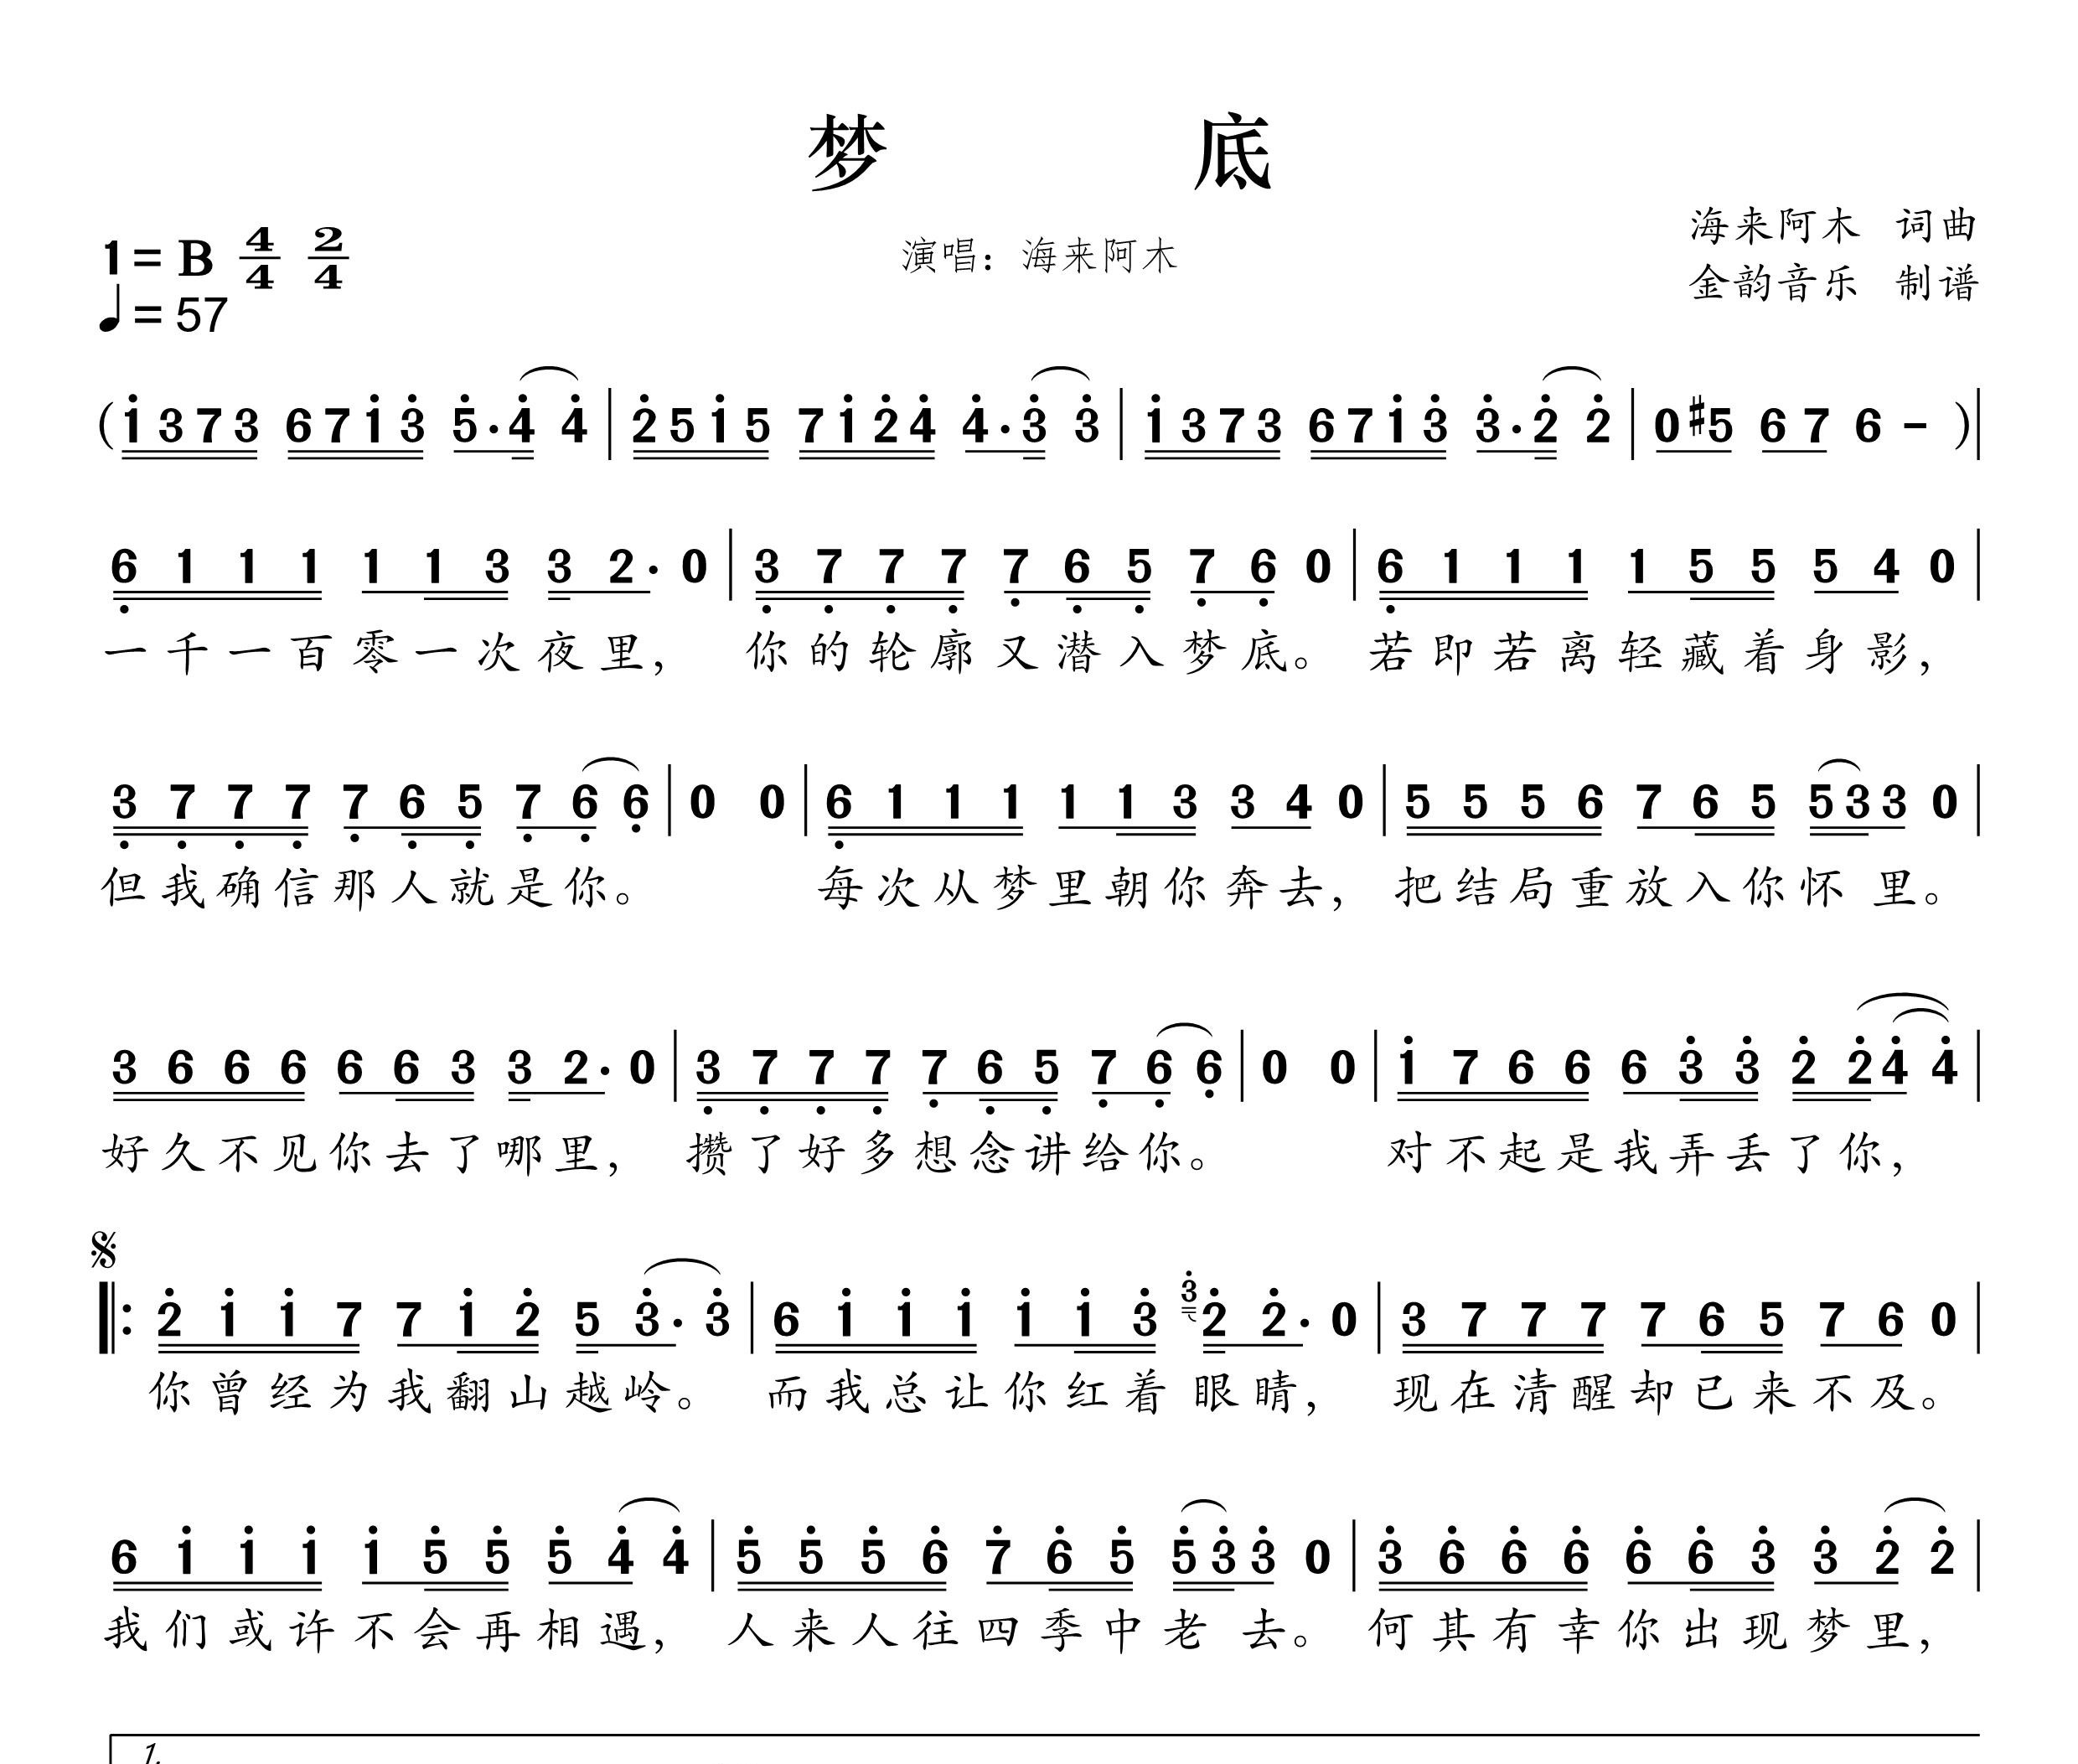 梦 底
演唱：海来阿木
海来阿木 词曲
金韵音乐 制谱
1=B 4/4 2/4
♩=57
(1̇373 671̇3̇ 5̇·4̇ 4̇ | 2̇51̇5 71̇2̇4̇ 4̇·3̇ 3̇ | 1̇373 671̇3̇ 3̇·2̇ 2̇ | 0#5 67 6 - )|
6̣ 1 1 1 1 1 3 3 2· 0 | 3̣ 7̣ 7̣ 7̣ 7̣ 6̣ 5̣ 7̣ 6̣ 0 | 6̣ 1 1 1 1 5 5 5 4 0 |
一千一百零一次夜里， 你的轮廓又潜入梦底。 若即若离轻藏着身影，
3̣ 7̣ 7̣ 7̣ 7̣ 6̣ 5̣ 7̣ 6̣ 6̣ | 0 0 | 6̣ 1 1 1 1 1 3 3 4 0 | 5 5 5 6 7 6 5 5 3 3 0 |
但我确信那人就是你。 每次从梦里朝你奔去， 把结局重放入你怀 里。
3 6 6 6 6 6 3 3 2· 0 | 3̣ 7̣ 7̣ 7̣ 7̣ 6̣ 5̣ 7̣ 6̣ 6̣ | 0 0 | 1̇ 7 6 6 6 3̇ 3̇ 2̇ 2̇ 4̇ 4̇ |
好久不见你去了哪里， 攒了好多想念讲给你。 对不起是我弄丢了你，
𝄋
‖: 2̇ 1̇ 1̇ 7 7 1̇ 2̇ 5 3̇· 3̇ | 6 1̇ 1̇ 1̇ 1̇ 1̇ 3̇ 3̇ 2̇ 2̇· 0 | 3 7 7 7 7 6 5 7 6 0 |
你曾经为我翻山越岭。 而我总让你红着眼睛， 现在清醒却已来不及。
6 1̇ 1̇ 1̇ 1̇ 5̇ 5̇ 5̇ 4̇ 4̇ | 5̇ 5̇ 5̇ 6̇ 7̇ 6̇ 5̇ 5̇ 3̇ 3̇ 0 | 3̇ 6̇ 6̇ 6̇ 6̇ 6̇ 3̇ 3̇ 2̇ 2̇ |
我们或许不会再相遇， 人来人往四季中老 去。 何其有幸你出现梦里，
1.